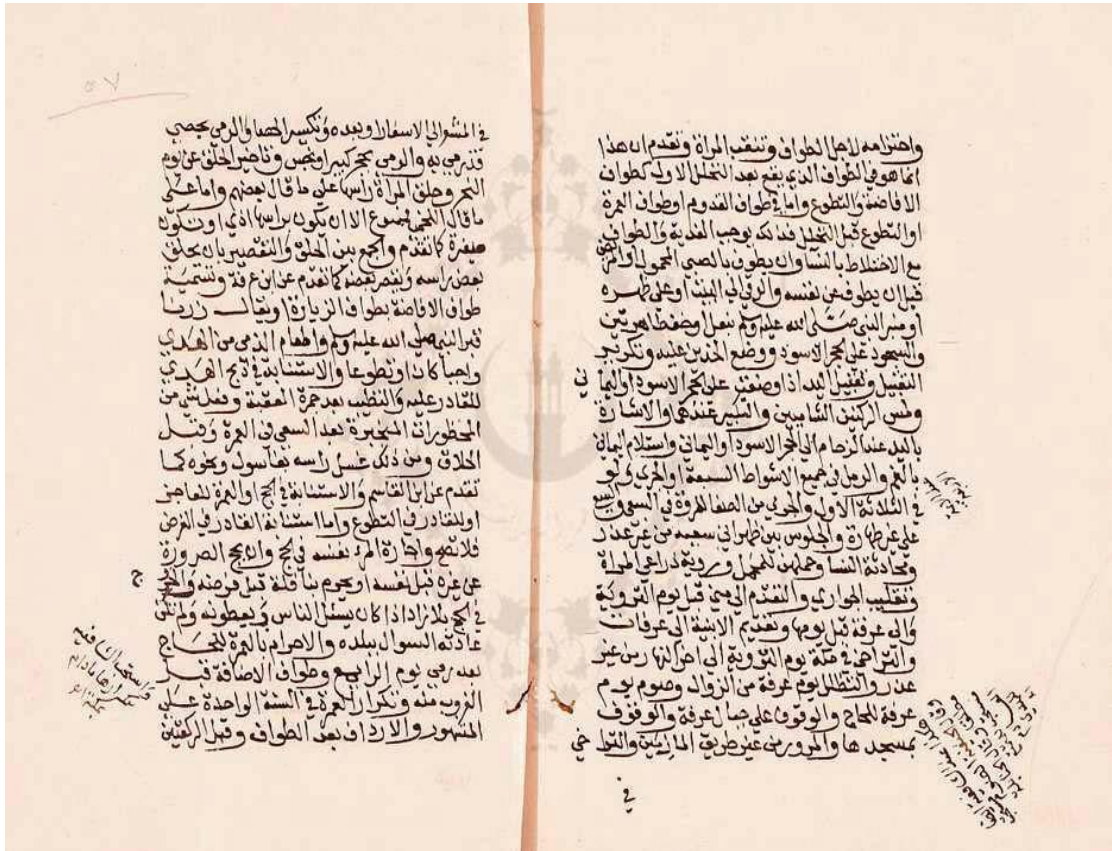 واحتزامه لاجل الطواف وتنقب المراة وتقدم ان هذا
انما هو في الطواف الذي يقع بعد التحلل الاول كطواف
الافاضة والتطوع واما في طواف القدوم او طواف العمرة
او التطوع قبل التحلل فذلك يوجب الفدية والطواف
مع الاختلاط بالنسا وان يطوف بالصبي المحمول او المريض
قبل ان يطوف عن نفسه والرقي الي البيت او على ظهره
او منبر النبي صلى الله عليه وسلم بنعل او خف طاهرتين
والسجود على الحجر الاسود ووضع الخدين عليه وتكرير
التقبيل وتقبيل اليد اذا وضعت على الحجر الاسود او اليماني
ولمس الركنين الشاميين والتكبير عندهما والاشارة
باليد عند الزحام الي الحجر الاسود او اليماني واستلام اليماني
بالفم والرمل في جميع الاشواط السبعة او الجري ولو
في الثلاثة الاول والجري من الصفا للمروة في السعي والسعي
على غير طهارة والجلوس بين ظهراني سعيه من غير عذر
ومحادثة النسا وحملهن للمحمل ورؤية ذراعي المراة
وتقليب الجواري والتقدم الي منى قبل يوم التروية
والى عرفة قبل يومها وتقديم الابنية الي عرفات
والتراخي في مكة يوم التروية الي اخر النهار من غير
عذر والتظلل يوم عرفة من الزوال وصوم يوم
عرفة للحاج والوقوف على جبال عرفة والوقوف
بمسجدها والمرور من غير طريق المازمين والتواخي
في
٥٧
في المشعر الي الاسفار او بعده وتكسير الحصا والرمي بحصى
قد رمي به والرمي بحجر كبير او نجس وتاخير الحلق عن يوم
النحر وحلق المراة راسها على ما قال بعضهم واما على
ما قال اللخمي فممنوع الا ان يكون براسها اذى او تكون
صغيرة كما تقدم والجمع بين الحلق والتقصير بان يحلق
بعض راسه ويقصر بعضه كما تقدم عن ابن عرفة وتسمية
طواف الافاضة بطواف الزيارة او يقال زرنا
قبر النبي صلى الله عليه وسلم واطعام الذمي من الهدي
واجبا كان او تطوعا والاستنابة في ذبح الهدي
للقادر عليه والتطيب بعد جمرة العقبة وفعل شي من
المحظورات المنجبرة بعد السعي في العمرة وقبل
الحلاق ومن ذلك غسل راسه بغاسول ونحوه كما
تقدم عن ابن القاسم والاستنابة في الحج او العمرة للعاجز
او للقادر في التطوع واما استنابة القادر في الفرض
فلا تصح واجارة المرء نفسه في الحج وان يحج الصرورة
عن غيره قبل نفسه او يحرم بنافلة قبل فرضه والحج
في الحج بلا زاد اذا كان يسئل الناس ويعطونه ولم تكن
عادته السوال ببلده والاحرام بالعمرة للحاج
بعد رمي يوم الرابع وطواف الافاضة قبل
الغروب منه وتكرار العمرة في السنة الواحدة على
المشهور والارداف بعد الطواف وقبل الركعتين